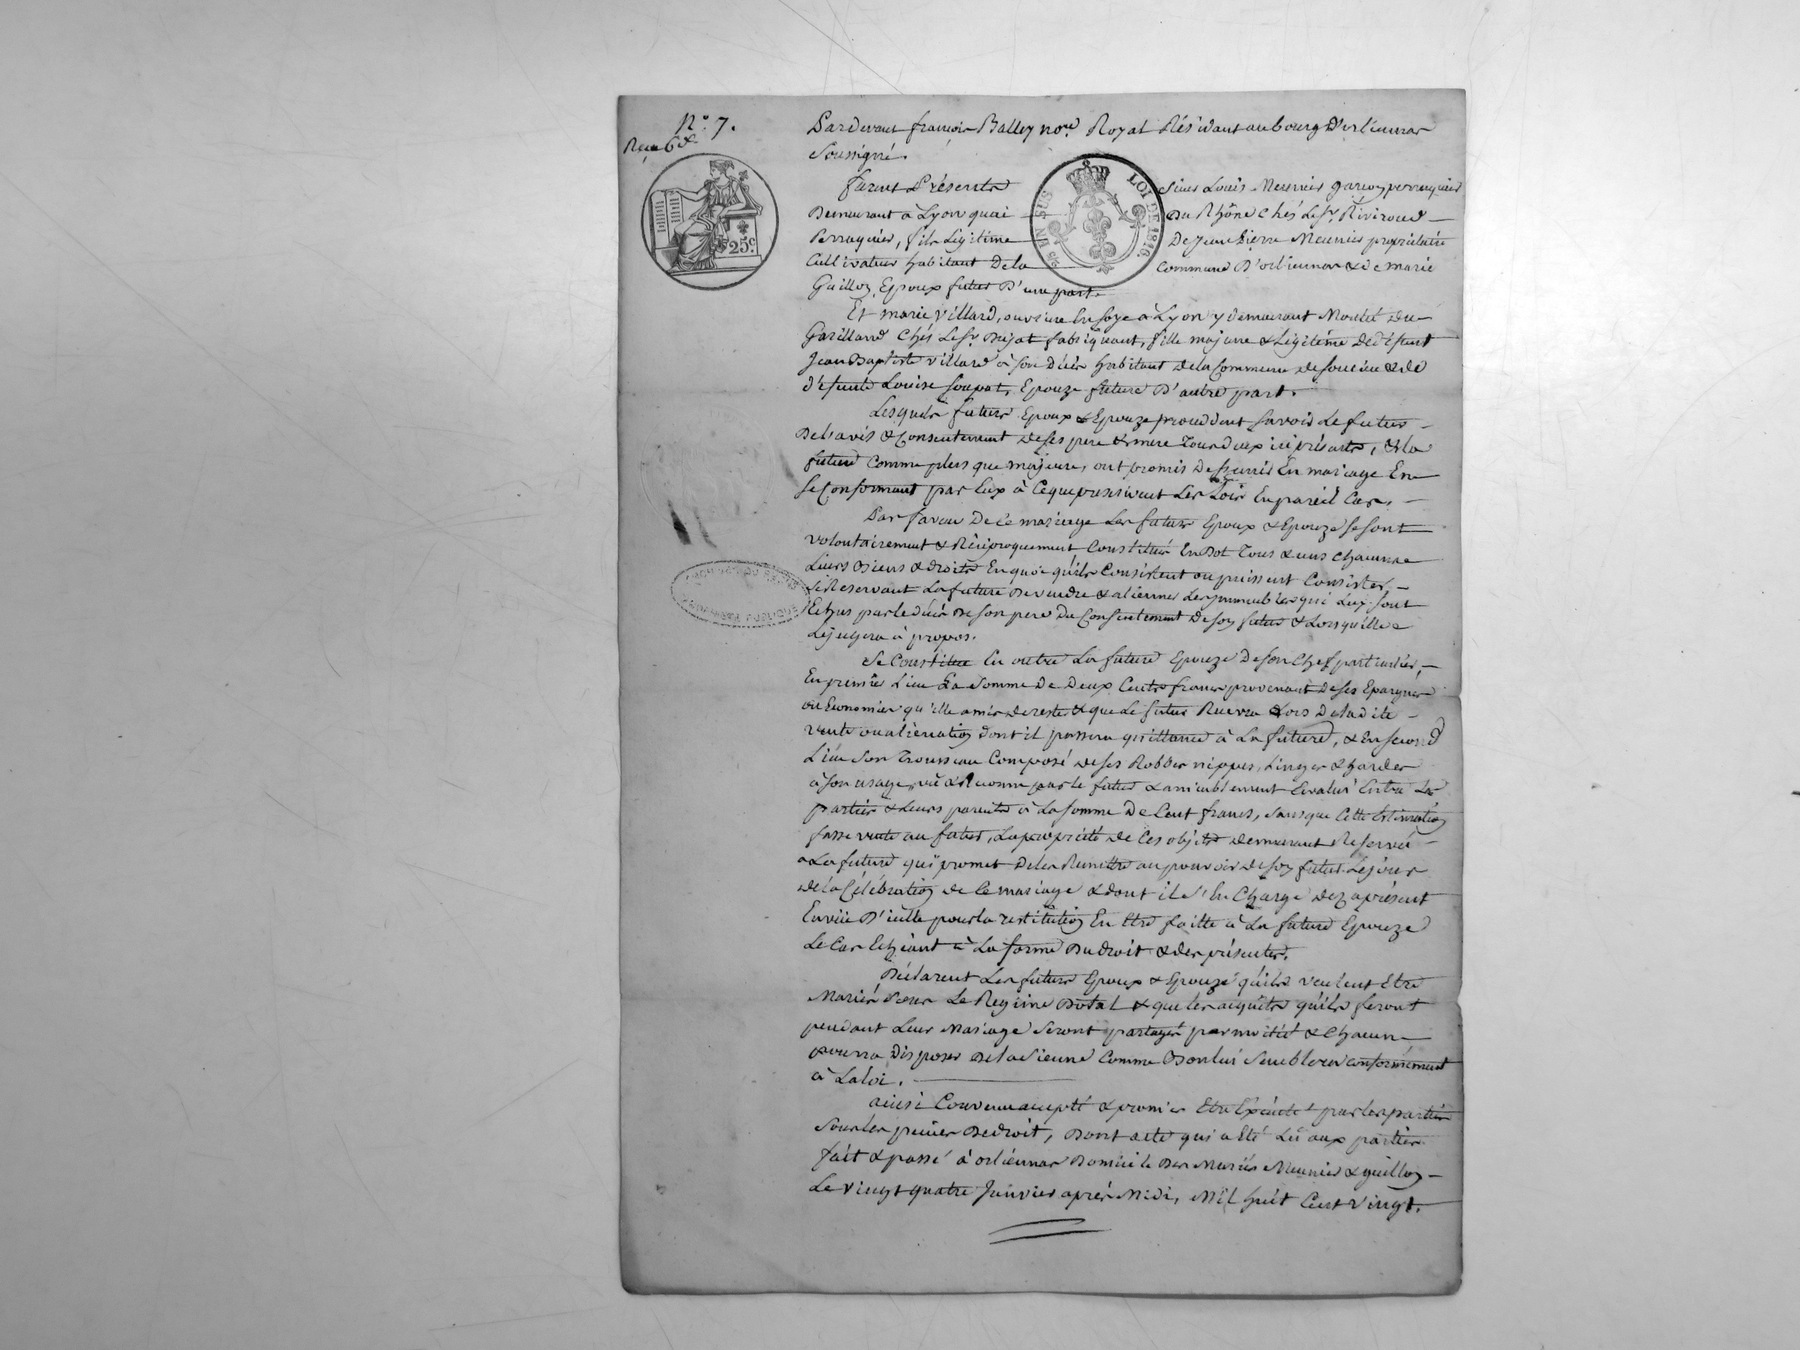 N.° 7.
Reçu 6 f.
25.c
25 EN SUS
LOI DE 1816.
Pardevant françois Balley no.re Royal Résidant au bourg D'orliennas
Soussigné.
furent Présents Sieur Louis Meunier garçon perruquier
Demeurant à Lyon quai Du Rhône chés le Sr. Riviroud
Perruquier, fils Légitime De Jean Pierre Meunier propriétaire
Cultivateur habitant De la Commune D'orliennas & de marie
Guillon, Epoux futur D'une part.
Et marie Villard, ouvriere En soye à Lyon y demeurant Montée du
Garilland Chés Le Sr. fabriquant, fille majeure & Légitime De Défunt
Jean Baptiste Villard à son Décès habitant de la Commune de soucieu & de
défunte Louise Soupat, Epouze future D'autre part.
Lesquels futurs Epoux & Epouze procédent savoir Le futur
De L'avis & Consentement de ses pere & mere Tous deux ici présents, & la
future comme plus que majeure, ont promis De S'unir En mariage En
se Conformant par Eux à Ce que prescrivent Les Loix En pareil Cas.
Par faveur De Ce mariage Les futurs Epoux & Epouze se sont
volontairement & Réciproquement Constitués En Dot Tous & uns chacuns
Leurs Biens & droits En quoi qu'ils Consistent ou puissent Consister
se Reservant La future De vendre & aliéner Les immeubles qui Luy sont
Echus par le décès De son pere du Consentement De son futur & Lorsqu'elle
Le jugera à propos.
Se Constitue En outre La future Epouze De son Chef particulier,
En premier Lieu La somme De Deux Cents francs provenant De ses Epargnes
ou Economies qu'elle a mis de reste & que Le futur Recevra Lors De la dite
vente ou aliénation dont il passera quittance à La future, & En second
Lieu son Trousseau Composé de ses Robbes nippes, Linges & hardes
à son usage, vû & Reconnu par le futur & amiablement Evalué Entre Les
parties & Leurs parents à La somme De Cent francs, sans que Cette Estimation
fasse vente au futur, La propriété de Ces objets demeurant Réservée
à La future qui promet De les Remettre au pouvoir de son futur Le jour
de la Célébration de Ce mariage & dont il s'En Charge dez aprésent
En vüe D'icelle pour la restitution En Etre faitte à La future Epouze
Le Cas Echéant à La forme Du droit & des présentes.
Déclarent Les futurs Epoux & Epouze qu'ils veulent Etre
Mariés sous Le Regime Dotal & que les acquêts qu'ils feront
pendant Leur Mariage seront partagés par moitié & Chacun
pourra Disposer De la sienne Comme Bon lui semblera conformément
à La loi.
ainsi Convenu accepté & promis Etre Exécuté par les parties
sous les peines De droit, Dont acte qui a Eté Lû aux parties
fait & passé à orliennas Domicile Des Mariés Meunier & guillon
Le vingt quatre Janvier après Midi, Mil huit Cent vingt.